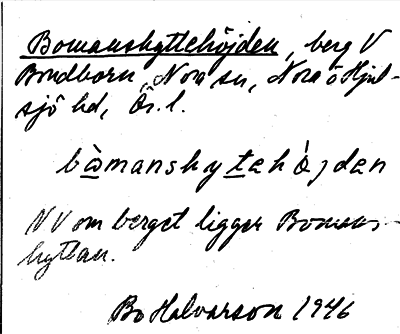 Bomanshyttehöjden, berg V
Bondborn, Nora sn, Nora o Hjul-
sjö hd, Ör. l.
bò̱manshyt̲ehò̱jdan
NV om berget ligger Bomans-
hyttan.
Bo Halvarson 1946